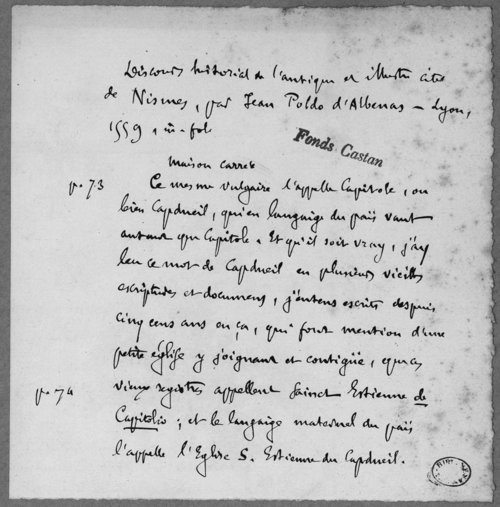 Discours historial de l'antique et illustre cité
de Nismes, par Jean Poldo d'Albenas – Lyon,
1559, in-fol
Fonds Castan
Maison carrée
p. 73 Ce mesme vulgaire l'appelle Capitole, ou
bien Capdueil, qu'en langaige du païs vaut
autant que Capitole. Et qu'il soit vray, j'ay
leu ce mot de Capdueil en plusieurs vieilles
escriptures et documens, j'entens escrits despuis
cinq cens ans en ça, qui font mention d'une
petite église y joignant et contigüe, que ces
p. 74 vieux registres appellent sainct Estienne de
Capitolio ; et le langaige maternel du païs
l'appelle l'Eglise S. Estienne du Capdueil.